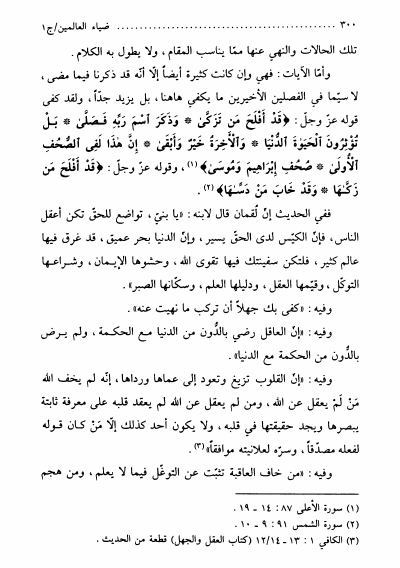 ٣٠٠ ........................................ ضياء العالمين/ج١
تلك الحالات والنهي عنها ممّا يناسب المقام ، ولا يطول به الكلام .
وأمّا الآيات : فهي وإن كانت كثيرة أيضاً إلّا أنّه قد ذكرنا فيما مضى ،
لا سيّما في الفصلين الأخيرين ما يكفي هاهنا ، بل يزيد جدّاً ، ولقد كفى
قوله عزّ وجلّ : ﴿قَدْ أَفْلَحَ مَن تَزَكَّىٰ * وَذَكَرَ اسْمَ رَبِّهِ فَصَلَّىٰ * بَلْ
تُؤْثِرُونَ الْحَيَوٰةَ الدُّنْيَا * وَالْآخِرَةُ خَيْرٌ وَأَبْقَىٰ * إِنَّ هَٰذَا لَفِي الصُّحُفِ
الْأُولَىٰ * صُحُفِ إِبْرَاهِيمَ وَمُوسَىٰ﴾(١) ، وقوله عزّ وجلّ : ﴿قَدْ أَفْلَحَ مَن
زَكَّىٰهَا * وَقَدْ خَابَ مَنْ دَسَّىٰهَا﴾(٢) .
ففي الحديث إنّ لُقمان قال لابنه : «يا بنيّ ، تواضع للحقّ تكن أعقل
الناس، فإنّ الكيّس لدى الحقّ يسير ، وإنّ الدنيا بحر عميق ، قد غرق فيها
عالم كثير ، فلتكن سفينتك فيها تقوى الله ، وحشوها الإيـمان ، وشراعـها
التوكّل ، وقيّمها العقل ، ودليلها العلم ، وسكّانها الصبر» .
وفيه : «كفى بك جهلاً أن تركب ما نهيت عنه» .
وفيه : «إنّ العاقل رضي بالدُّون من الدنيا مـع الحكـمة ، ولم يـرض
بالدُّون من الحكمة مع الدنيا» .
وفيه : «إنّ القلوب تزيغ وتعود إلى عماها ورداها، إنّه لم يخف الله
مَنْ لَمْ يعقل عن الله ، ومن لم يعقل عن الله لم يعقد قلبه على معرفة ثابتة
يبصرها ويجد حقيقتها في قلبه ، ولا يكون أحد كذلك إلّا مَنْ كـان قـوله
لفعله مصدّقاً ، وسرّه لعلانيته موافقاً»(٣) .
وفيه : «من خاف العاقبة تثبّت عن التوغّل فيما لا يعلم ، ومن هجم
(١) سورة الأعلى ٨٧ : ١٤ ـ ١٩ .
(٢) سورة الشمس ٩١ : ٩ ـ ١٠ .
(٣) الكافي ١ : ١٣ ـ ١٢/١٤ (كتاب العقل والجهل) قطعة من الحديث .